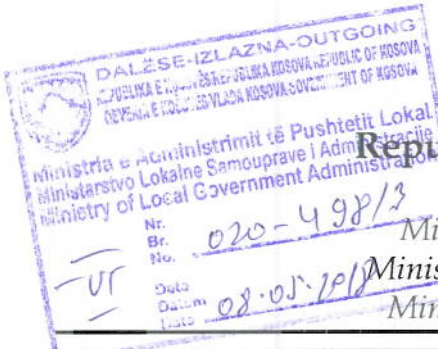 DALËSE-IZLAZNA-OUTGOING
REPUBLIKA E KOSOVËS REPUBLIKA KOSOVA REPUBLIC OF KOSOVA
QEVERIA E KOSOVËS VLADA KOSOVA GOVERNMENT OF KOSOVA
Ministria e Administrimit të Pushtetit Lokal
Ministarstvo Lokalne Samouprave i Administracije
Ministry of Local Government Administration
Repu
Nr.
Br.
No. 020-498/3
Mi
Minis
Min
Data
Datum 08.05.
Date